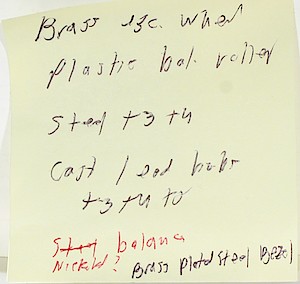 Brass esc. wheel
plastic bal. roller
Steel t3 t4
Cast lead bobs
t3 t4 t5
Steel balance
Nickeld? Brass plated steel Bezel